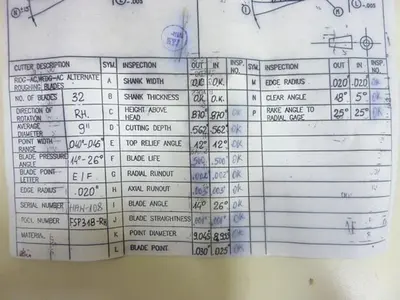 -.005
CUTTER DESCRIPTION SYM. INSPECTION OUT IN INSP. NO. SYM. INSPECTION OUT IN INSP. NO.
RIDG-AC, WEDG-AC ALTERNATE ROUGHING BLADES A SHANK WIDTH O.K. O.K. M EDGE RADIUS .020 .020 OK
NO. OF BLADES 32 B SHANK THICKNESS O.K. O.K. N CLEAR ANGLE 18° 5° OK
DIRECTION OF ROTATION RH. C HEIGHT ABOVE HEAD .870 .870 OK P RAKE ANGLE TO RADIAL GAGE 25° 25° OK
AVERAGE DIAMETER 9" D CUTTING DEPTH .562 .562 OK
POINT WIDTH RANGE .040"-.045" E TOP RELIEF ANGLE 12° 12° OK
BLADE PRESSURE ANGLE 14°-26° F BLADE LIFE .500 .500 OK
BLADE POINT LETTER E/F G RADIAL RUNOUT .002 .002 OK
EDGE RADIUS .020" H AXIAL RUNOUT OK
SERIAL NUMBER I BLADE ANGLE 14° 26° OK
TOOL NUMBER J BLADE STRAIGHTNESS OK
MATERIAL K POINT DIAMETER 9.045 OK
L BLADE POINT .030 .025 OK